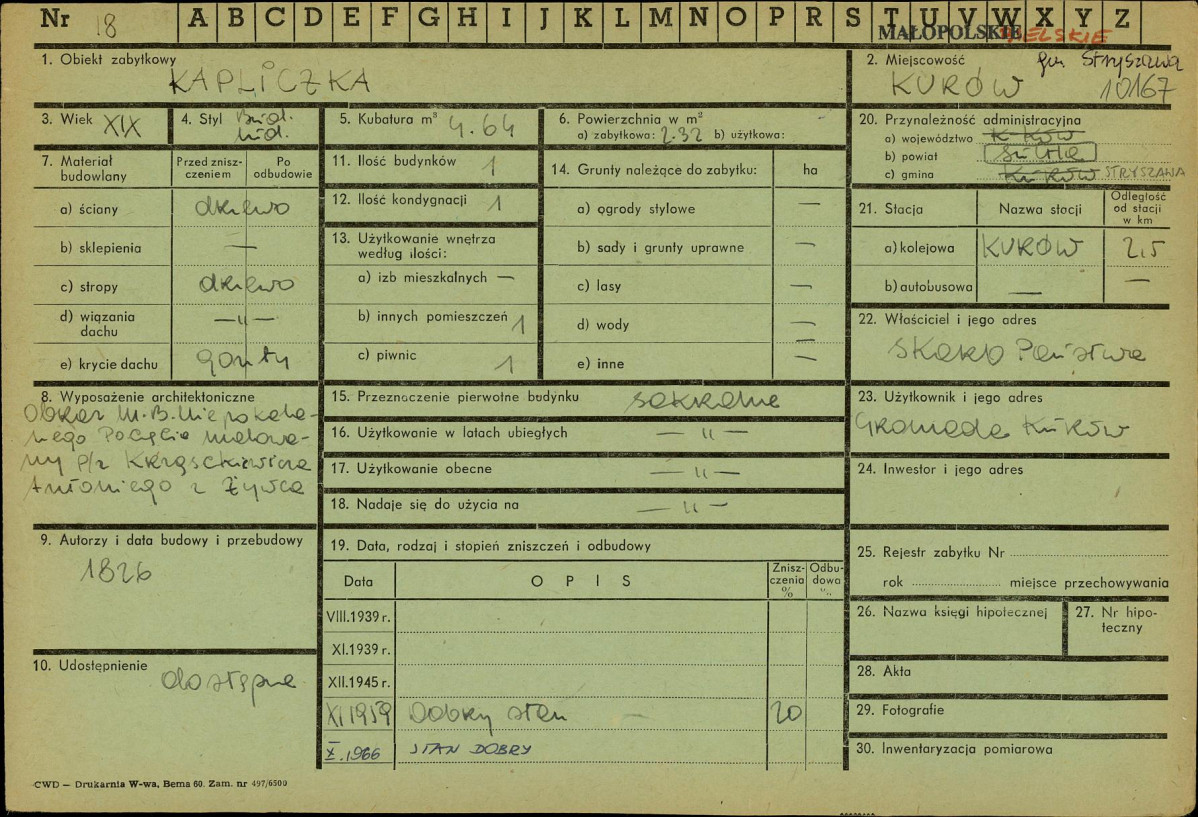 Nr 18 A B C D E F G H I J K L M N O P R S T U V W X Y Z
MAŁOPOLSKIE
1. Obiekt zabytkowy
KAPLICZKA
2. Miejscowość gm Stryszawa
KURÓW 10167
3. Wiek XIX
4. Styl Bud. lud.
5. Kubatura m³ 4.64
6. Powierzchnia w m²
a) zabytkowa: 2.32 b) użytkowa:
20. Przynależność administracyjna
a) województwo Kraków
b) powiat Sucha
c) gmina Kuków STRYSZAWA
7. Materiał budowlany
Przed zniszczeniem
Po odbudowie
a) ściany drzewo
b) sklepienia —
c) stropy drzewo
d) wiązania dachu —"—
e) krycie dachu gonty
11. Ilość budynków 1
12. Ilość kondygnacji 1
13. Użytkowanie wnętrza
według ilości:
a) izb mieszkalnych —
b) innych pomieszczeń 1
c) piwnic 1
14. Grunty należące do zabytku: ha
a) ogrody stylowe —
b) sady i grunty uprawne —
c) lasy —
d) wody —
e) inne —
21. Stacja Nazwa stacji Odległość od stacji w km
a) kolejowa KURÓW 2,5
b) autobusowa — —
22. Właściciel i jego adres
Skarb Państwa
8. Wyposażenie architektoniczne
Obraz M.B. Niepokala-
nego Poczęcia malowa-
ny p/z
Antoniego z Żywca
15. Przeznaczenie pierwotne budynku sakralne
16. Użytkowanie w latach ubiegłych —"—
17. Użytkowanie obecne —"—
18. Nadaje się do użycia na —"—
23. Użytkownik i jego adres
Gromada Kuków
24. Inwestor i jego adres
9. Autorzy i data budowy i przebudowy
1826
19. Data, rodzaj i stopień zniszczeń i odbudowy
Data OPIS Zniszczenia % Odbudowa %
VIII.1939 r.
XI.1939 r.
XII.1945 r.
XI 1959 Dobry stan 20
X.1966 STAN DOBRY
25. Rejestr zabytku Nr
rok miejsce przechowywania
26. Nazwa księgi hipotecznej
27. Nr hipo-
teczny
10. Udostępnienie
dostępne
28. Akta
29. Fotografie
30. Inwentaryzacja pomiarowa
CWD — Drukarnia W-wa, Bema 60. Zam. nr 497/6500